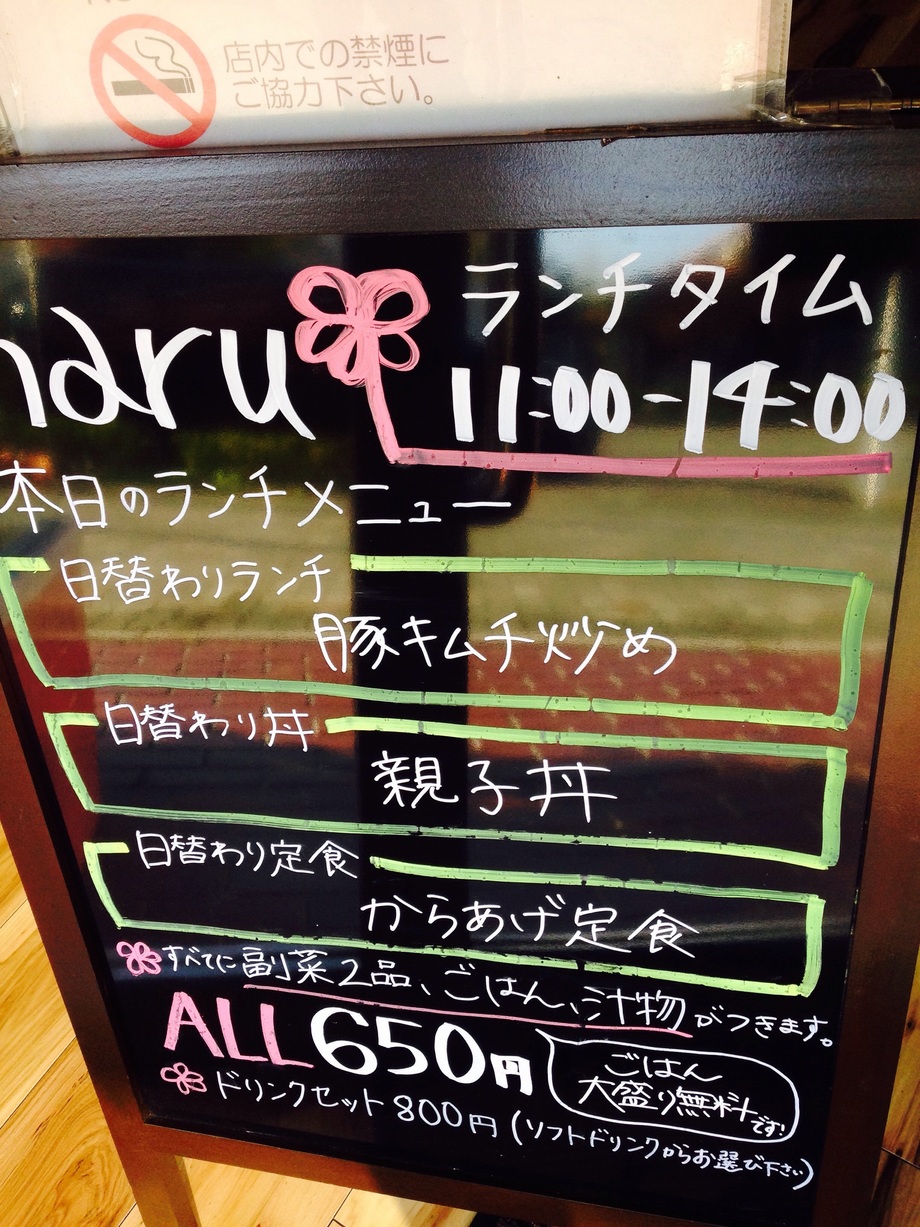 店内での禁煙に
ご協力下さい。
haru
ランチタイム
11:00-14:00
本日のランチメニュー
日替わりランチ
豚キムチ炒め
日替わり丼
親子丼
日替わり定食
からあげ定食
すべてに副菜2品、ごはん、汁物がつきます。
ALL650円
ごはん
大盛り無料
です!
ドリンクセット800円(ソフトドリンクからお選び下さい)